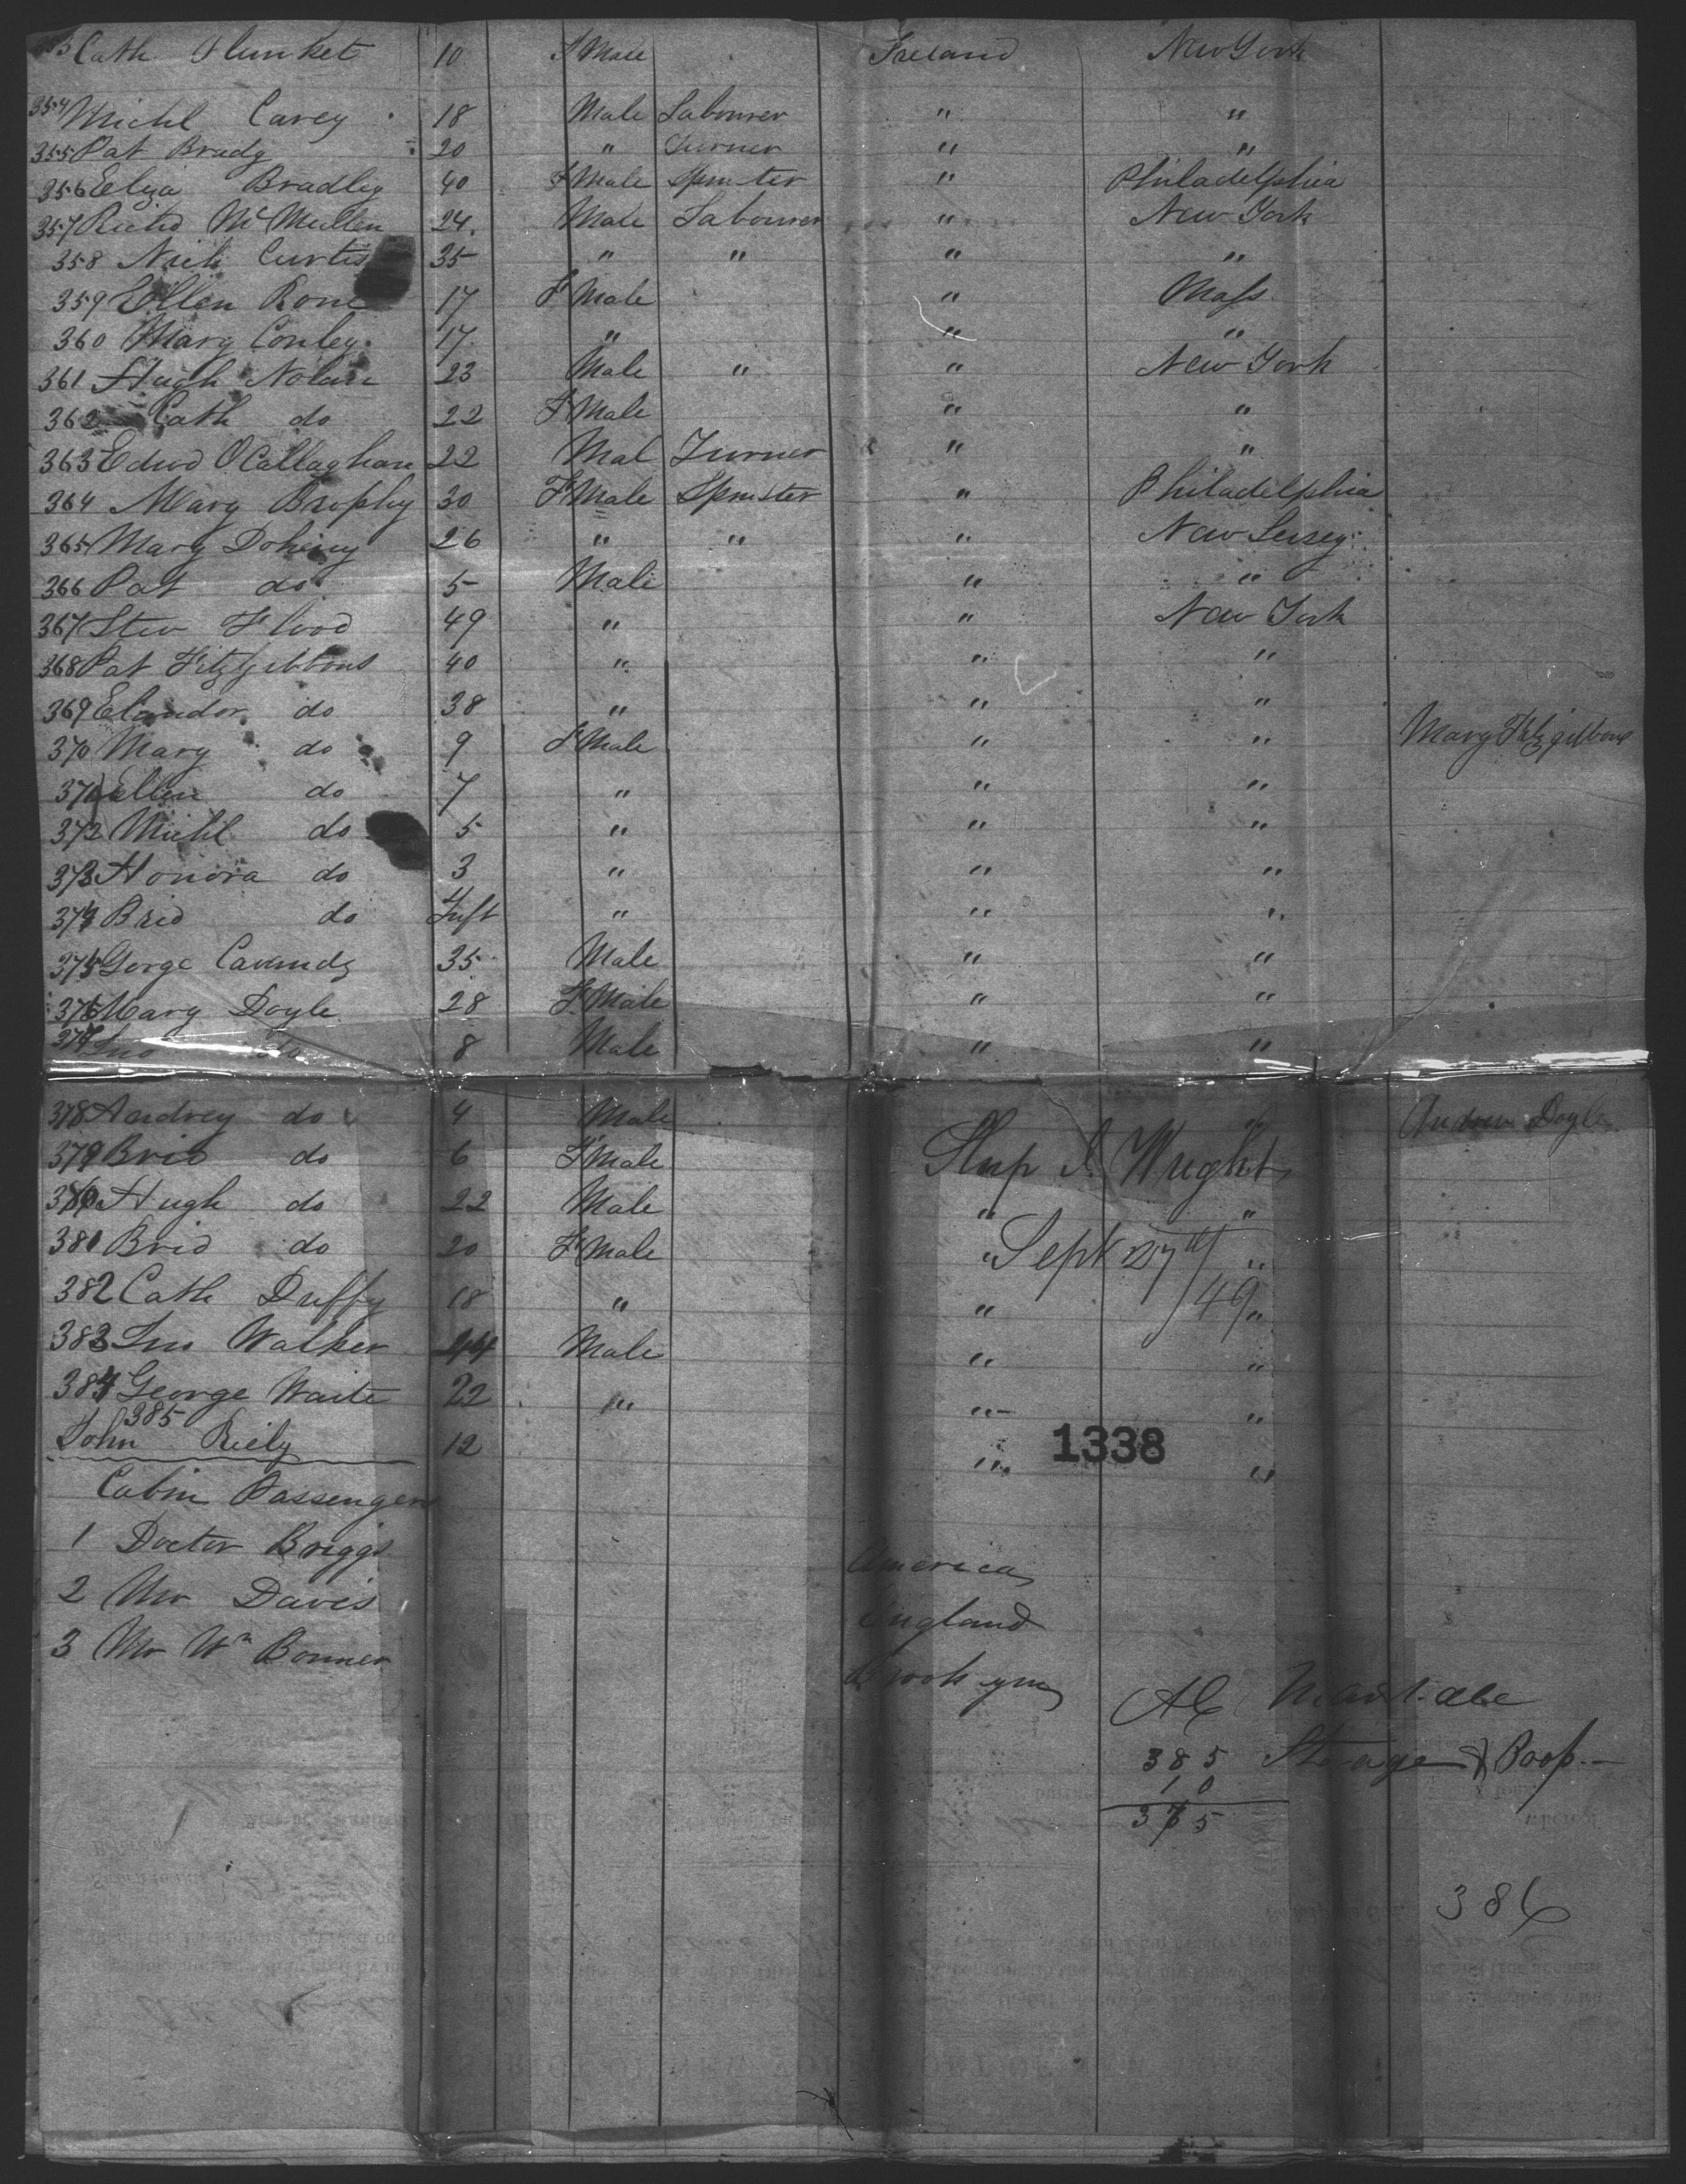 353 Cath Plunket 10 F Male Ireland New York
354 Michl Carey 18 Male Labourer " "
355 Pat Brady 20 " Turner " "
356 Eliza Bradley 40 F Male Spinster " Philadelphia
357 Richd McMullen 24. Male Labourer " New York
358 Nich Curtis 35 " " " "
359 Ellen Rone 17 F Male " Mass
360 Mary Conley 17 " " "
361 Hugh Nolan 23 Male " " New York
362 Cath do 22 F Male " "
363 Edwd O'Callaghan 22 Mal Turner " "
364 Mary Brophy 30 F Male Spinster " Philadelphia
365 Mary Doheny 26 " " " New Jersey
366 Pat do 5 Male " "
367 Stew Flood 49 " " New York
368 Pat Fitzgibbons 40 " " "
369 do 38 " " "
370 Mary do 9 F Male " " Mary Fitzgibbons
371 Ellen do 7 " " "
372 Michl do 5 " " "
373 Honora do 3 " " "
374 Brid do Inft " " "
375 Gorge 35 Male " "
376 Mary Doyle 28 F Male " "
377 Jno do 8 Male " "
378 Andrey do 4 Male " Andrew Doyle
379 Brid do 6 F Male Ship I. Wright
Hugh do 22 Male " "
380 Brid do 20 F Male " Sept 27th "
382 Cath Duffy 18 " " /49 "
383 Jno Walker 44 Male " "
384 George Waite 22 " " "
385
John Riely 12 " 1338 "
Cabin Passengers
1 Doctor Briggs America
2 Mr Davis England
3 Mr Wm Bonner Brooklyn
385 Steerage & Poop
10
375
386